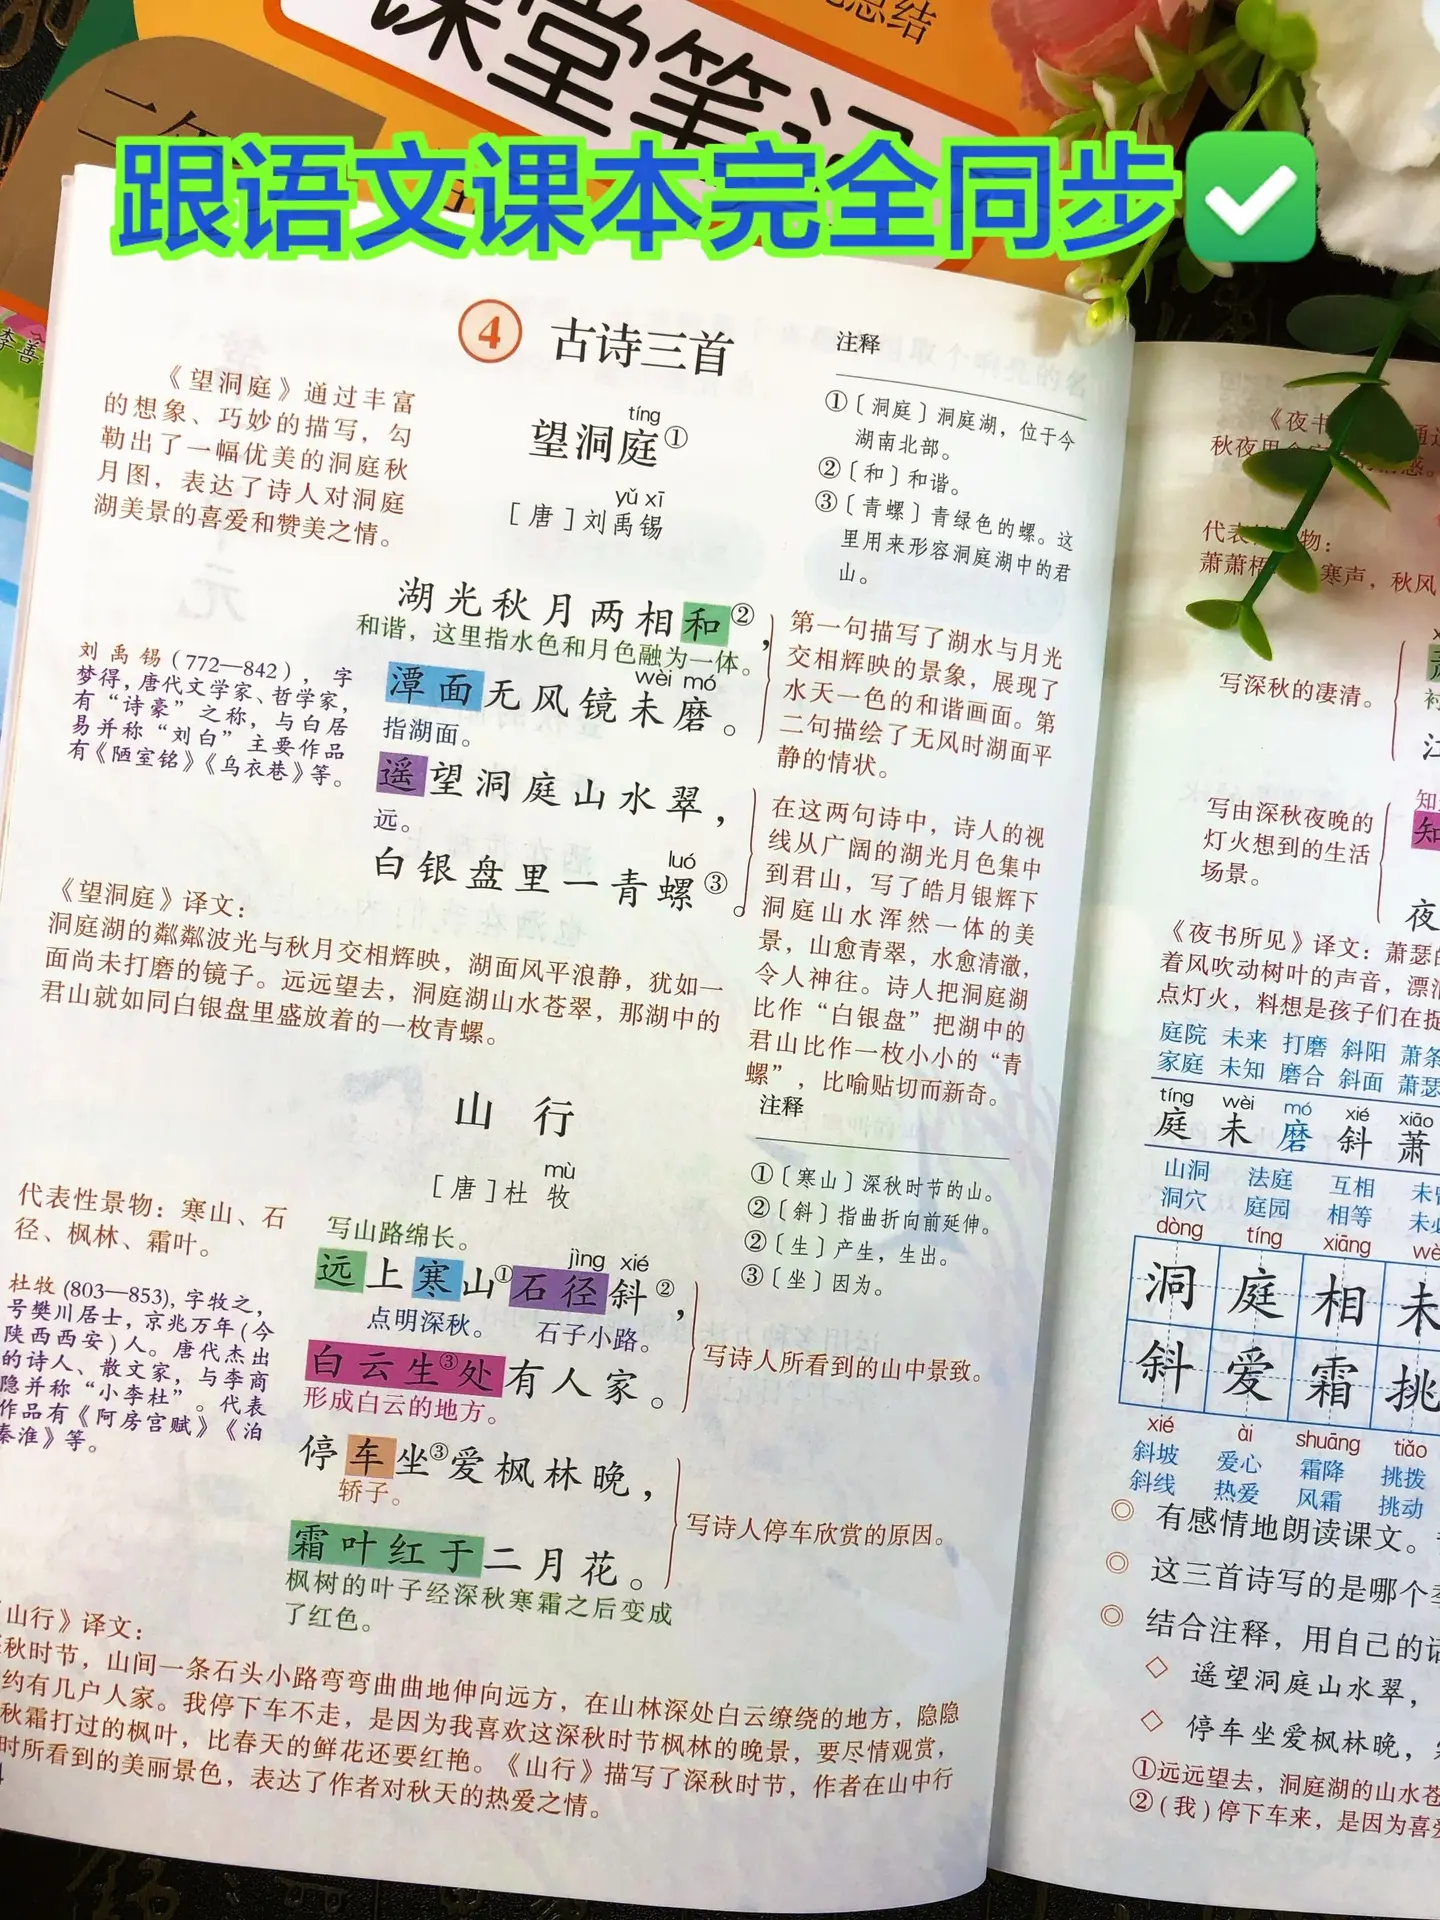 课堂笔记
总结
跟语文课本完全同步
4 古诗三首
《望洞庭》通过丰富
的想象、巧妙的描写，勾
勒出了一幅优美的洞庭秋
月图，表达了诗人对洞庭
湖美景的喜爱和赞美之情。
tíng
望洞庭①
yǔ xī
［唐］刘禹锡
注释
①〔洞庭〕洞庭湖，位于今
湖南北部。
②〔和〕和谐。
③〔青螺〕青绿色的螺。这
里用来形容洞庭湖中的君
山。
湖光秋月两相和②，
和谐，这里指水色和月色融为一体。
wèi mó
潭面无风镜未磨。
指湖面。
遥望洞庭山水翠，
远。
luó
白银盘里一青螺③。
第一句描写了湖水与月光
交相辉映的景象，展现了
水天一色的和谐画面。第
二句描绘了无风时湖面平
静的情状。
在这两句诗中，诗人的视
线从广阔的湖光月色集中
到君山，写了皓月银辉下
洞庭山水浑然一体的美
景，山愈青翠，水愈清澈，
令人神往。诗人把洞庭湖
比作“白银盘”把湖中的
君山比作一枚小小的“青
螺”，比喻贴切而新奇。
刘禹锡(772—842)，字
梦得，唐代文学家、哲学家，
有“诗豪”之称，与白居
易并称“刘白”主要作品
有《陋室铭》《乌衣巷》等。
《望洞庭》译文：
洞庭湖的粼粼波光与秋月交相辉映，湖面风平浪静，犹如一
面尚未打磨的镜子。远远望去，洞庭湖山水苍翠，那湖中的
君山就如同白银盘里盛放着的一枚青螺。
山 行
mù
［唐］杜牧
注释
①〔寒山〕深秋时节的山。
②〔斜〕指曲折向前延伸。
②〔生〕产生，生出。
③〔坐〕因为。
代表性景物：寒山、石
径、枫林、霜叶。
杜牧(803—853),字牧之，
号樊川居士，京兆万年(今
陕西西安)人。唐代杰出
的诗人、散文家，与李商
隐并称“小李杜”。代表
作品有《阿房宫赋》《泊
秦淮》等。
写山路绵长。
jìng xié
远上寒山①石径斜②，
点明深秋。 石子小路。
白云生③处有人家。
形成白云的地方。
写诗人所看到的山中景致。
停车坐③爱枫林晚，
轿子。
霜叶红于二月花。
枫树的叶子经深秋寒霜之后变成
了红色。
写诗人停车欣赏的原因。
《山行》译文：
秋时节，山间一条石头小路弯弯曲曲地伸向远方，在山林深处白云缭绕的地方，隐隐
约有几户人家。我停下车不走，是因为我喜欢这深秋时节枫林的晚景，要尽情观赏，
秋霜打过的枫叶，比春天的鲜花还要红艳。《山行》描写了深秋时节，作者在山中行
时所看到的美丽景色，表达了作者对秋天的热爱之情。
《夜书
代表
萧萧梧 寒声，秋风
写深秋的凄清。
写由深秋夜晚的
灯火想到的生活
场景。
知
夜
《夜书所见》译文：萧瑟的
着风吹动树叶的声音，漂泊
点灯火，料想是孩子们在捉
庭院 未来 打磨 斜阳 萧条
家庭 未知 磨合 斜面 萧瑟
tíng wèi mó xié xiāo
庭 未 磨 斜 萧
山洞 法庭 互相
洞穴 庭园 相等
dòng tíng xiāng wè
洞 庭 相 未
斜 爱 霜 挑
xié ài shuāng tiǎo
斜坡 爱心 霜降 挑拨
斜线 热爱 风霜 挑动
◎ 有感情地朗读课文。
◎ 这三首诗写的是哪个季
◎ 结合注释，用自己的话
◇ 遥望洞庭山水翠，
◇ 停车坐爱枫林晚，
①远远望去，洞庭湖的山水苍
②(我)停下车来，是因为喜爱